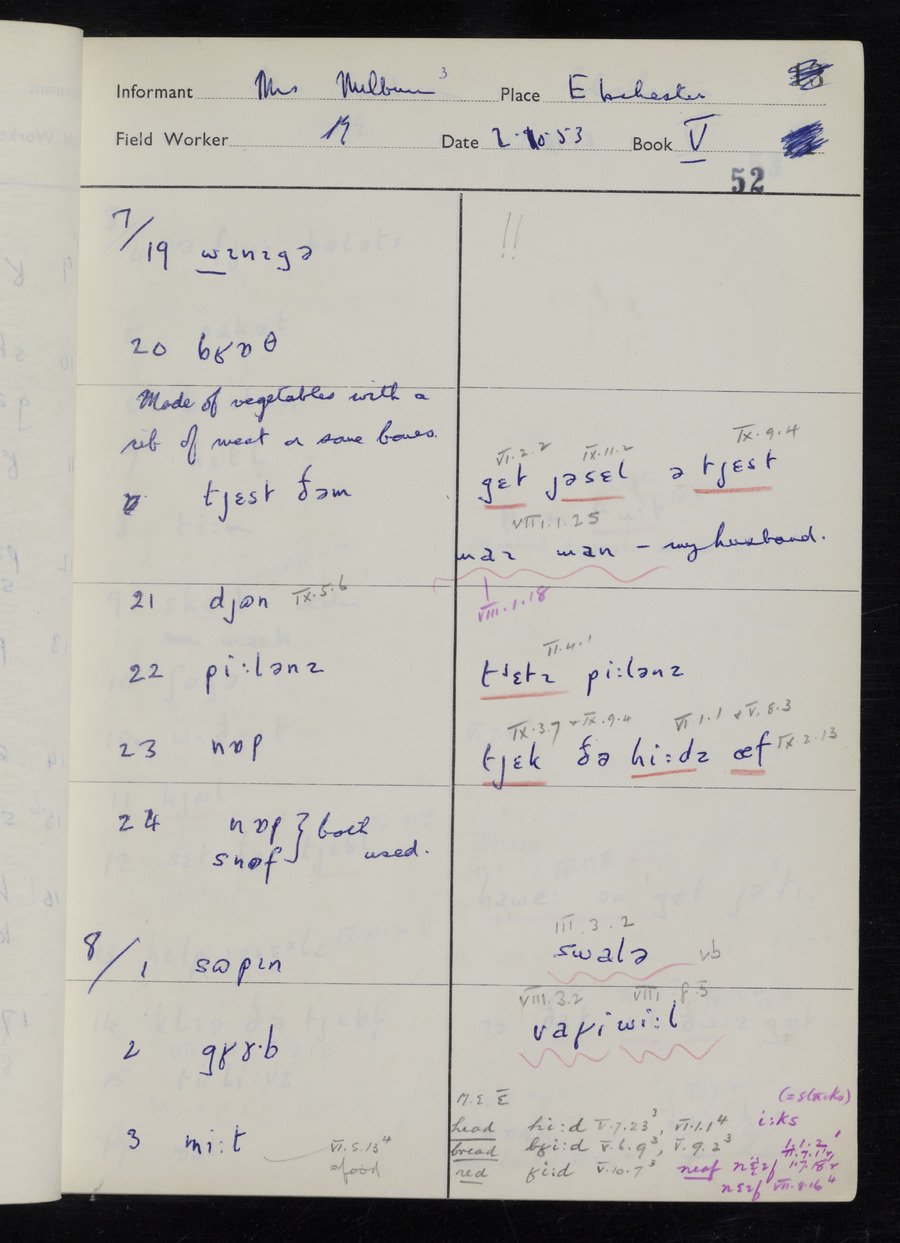 Informant Mrs Milburn 3 Place Ebchester
Field Worker N Date 2·10·53 Book V
52
7/19 wɪnɪgə !!
20 bʁɒθ
Made of vegetables with a
rib of meat or some bones.
tjɛst ðəm
VI.2.2 IX.11.2 IX.9.4
gɛt jəsɛl ə tjɛst
VIII.1.25
maɪ man – my husband.
VIII.1.18
21 djɵn IX.5.6
22 pi:lənz
II.4.1
pi:lənz
23 nɒp
IX.3.7 + IX.9.4 VI.1.1 + V.8.3
tjɛk ðə hi:dz œf IX.2.13
24 nɒp } both
snɵf used.
8/1 sɵpɪn
III.3.2
swalə vb
2 gʁɤ·b
VIII.3.2 VIII.8.5
vaʁiwi:l
3 mi:t
VI.5.13 4
=food
M.E. Ē
head hi:d V.7.23 3, VI.1.1 4
bread bʁi:d V.6.9 3, V.9.2 3
red ʁi:d V.10.7 3
(=stacks)
i:ks
neaf
VII.8.16 4